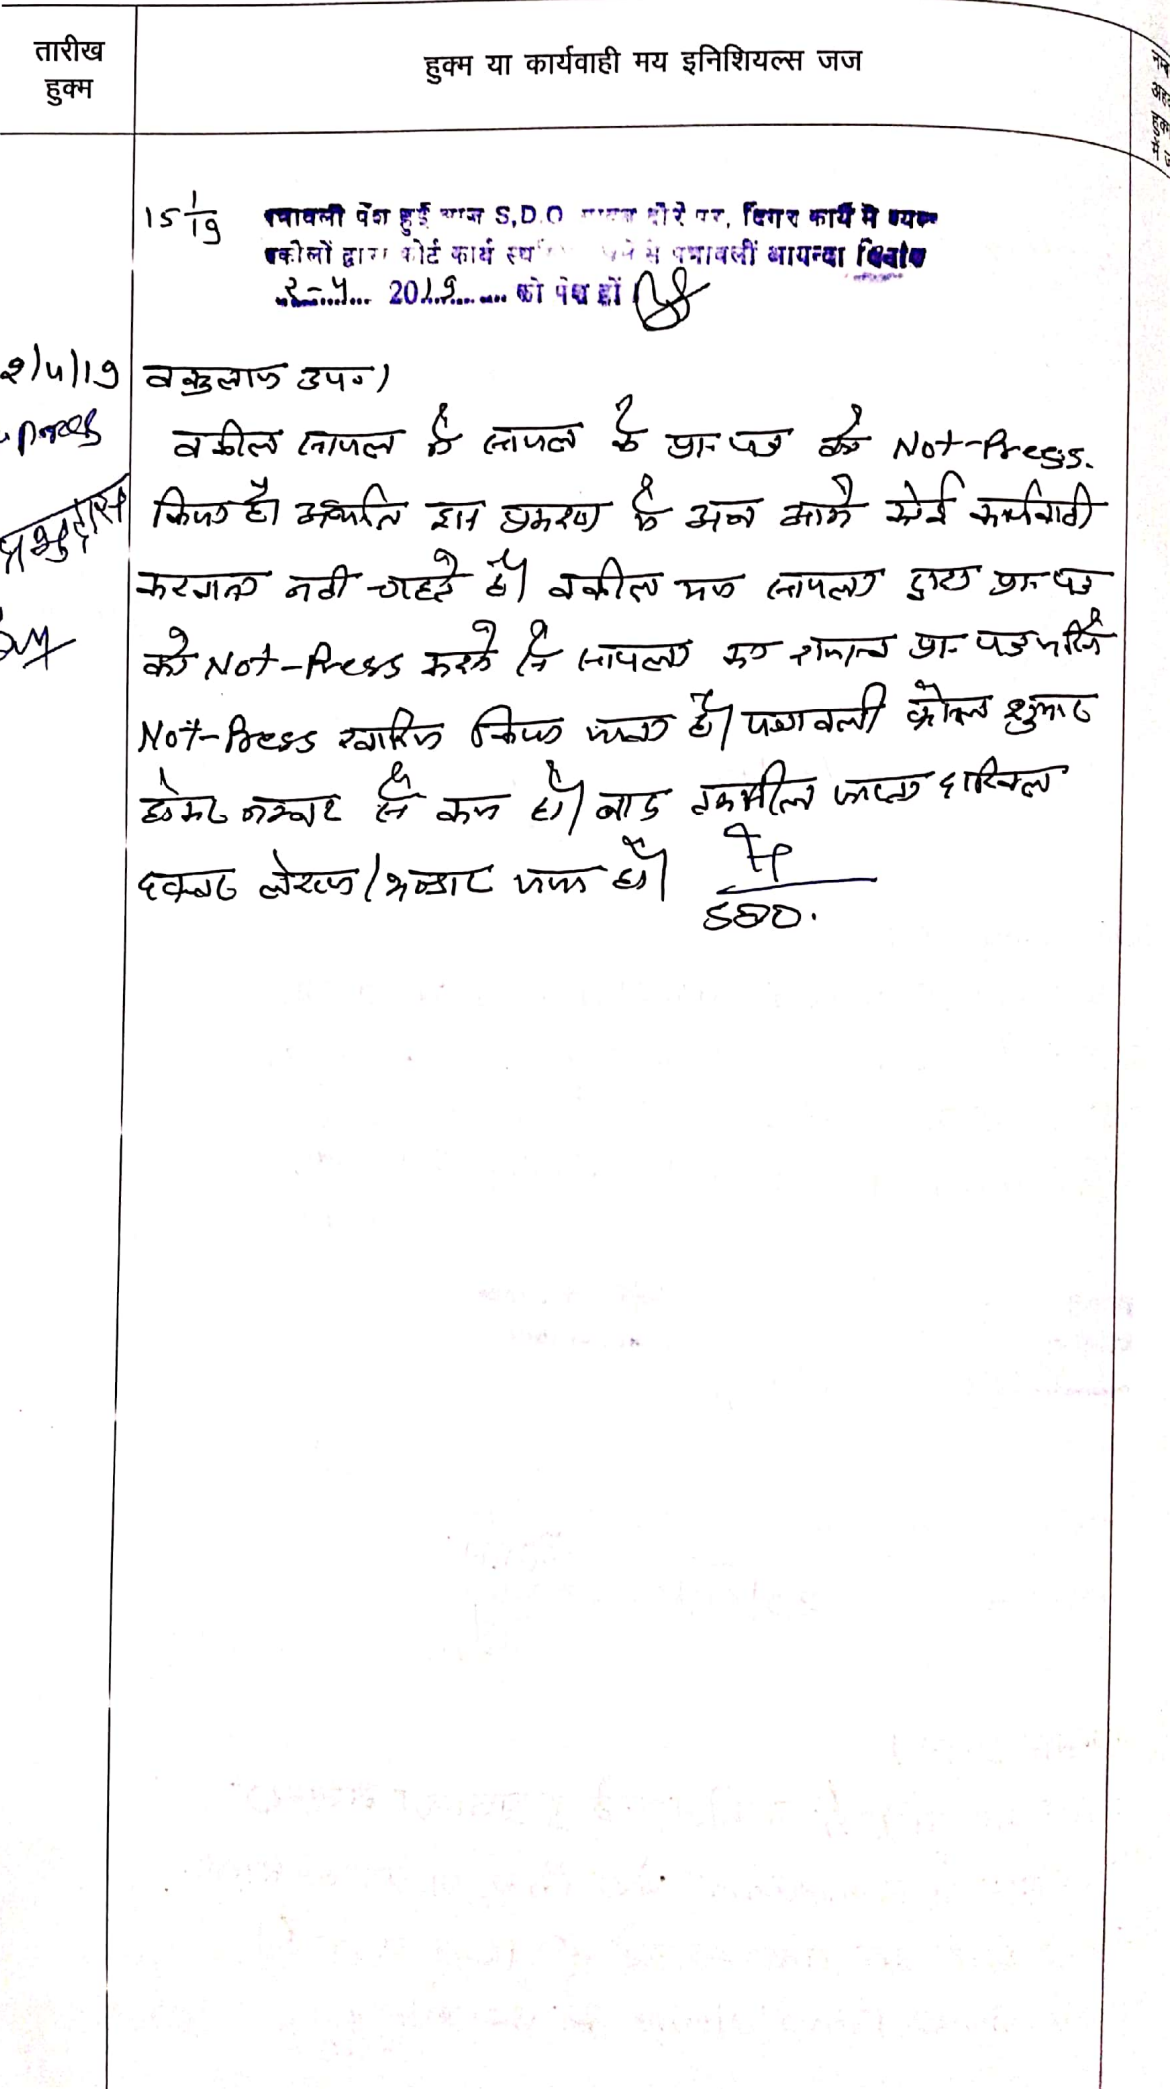 तारीख
हुक्म
हुक्म या कार्यवाही मय इनिशियल्स जज
हुक्म
में
15 1/19 पत्रावली पेश हुई आज S.D.O दौरे पर, दिगर कार्य में व्यस्त
वकीलों द्वारा कोर्ट कार्य से पत्रावली आयन्दा दिनांक
2-4 2019 को पेश हों
2/4/19 वकुलाय उप०।
वकील सायल ने सायल के प्रा० पत्र को Not-Press.
किया है। अर्थात इस प्रकरण में अब आगे कोई कार्यवाही
करवाना नही चाहते है। वकील मय सायल द्वारा प्रा० पत्र
को Not-Press करने से सायल का प्रा० पत्र
Not-Press खारिज किया जाता है। पत्रावली फैसल शुमार
होकर नम्बर से कम हो। बाद तकमील जाप्ता दाखिल
दफ्तर हो।
SDO.
प्रभुदास